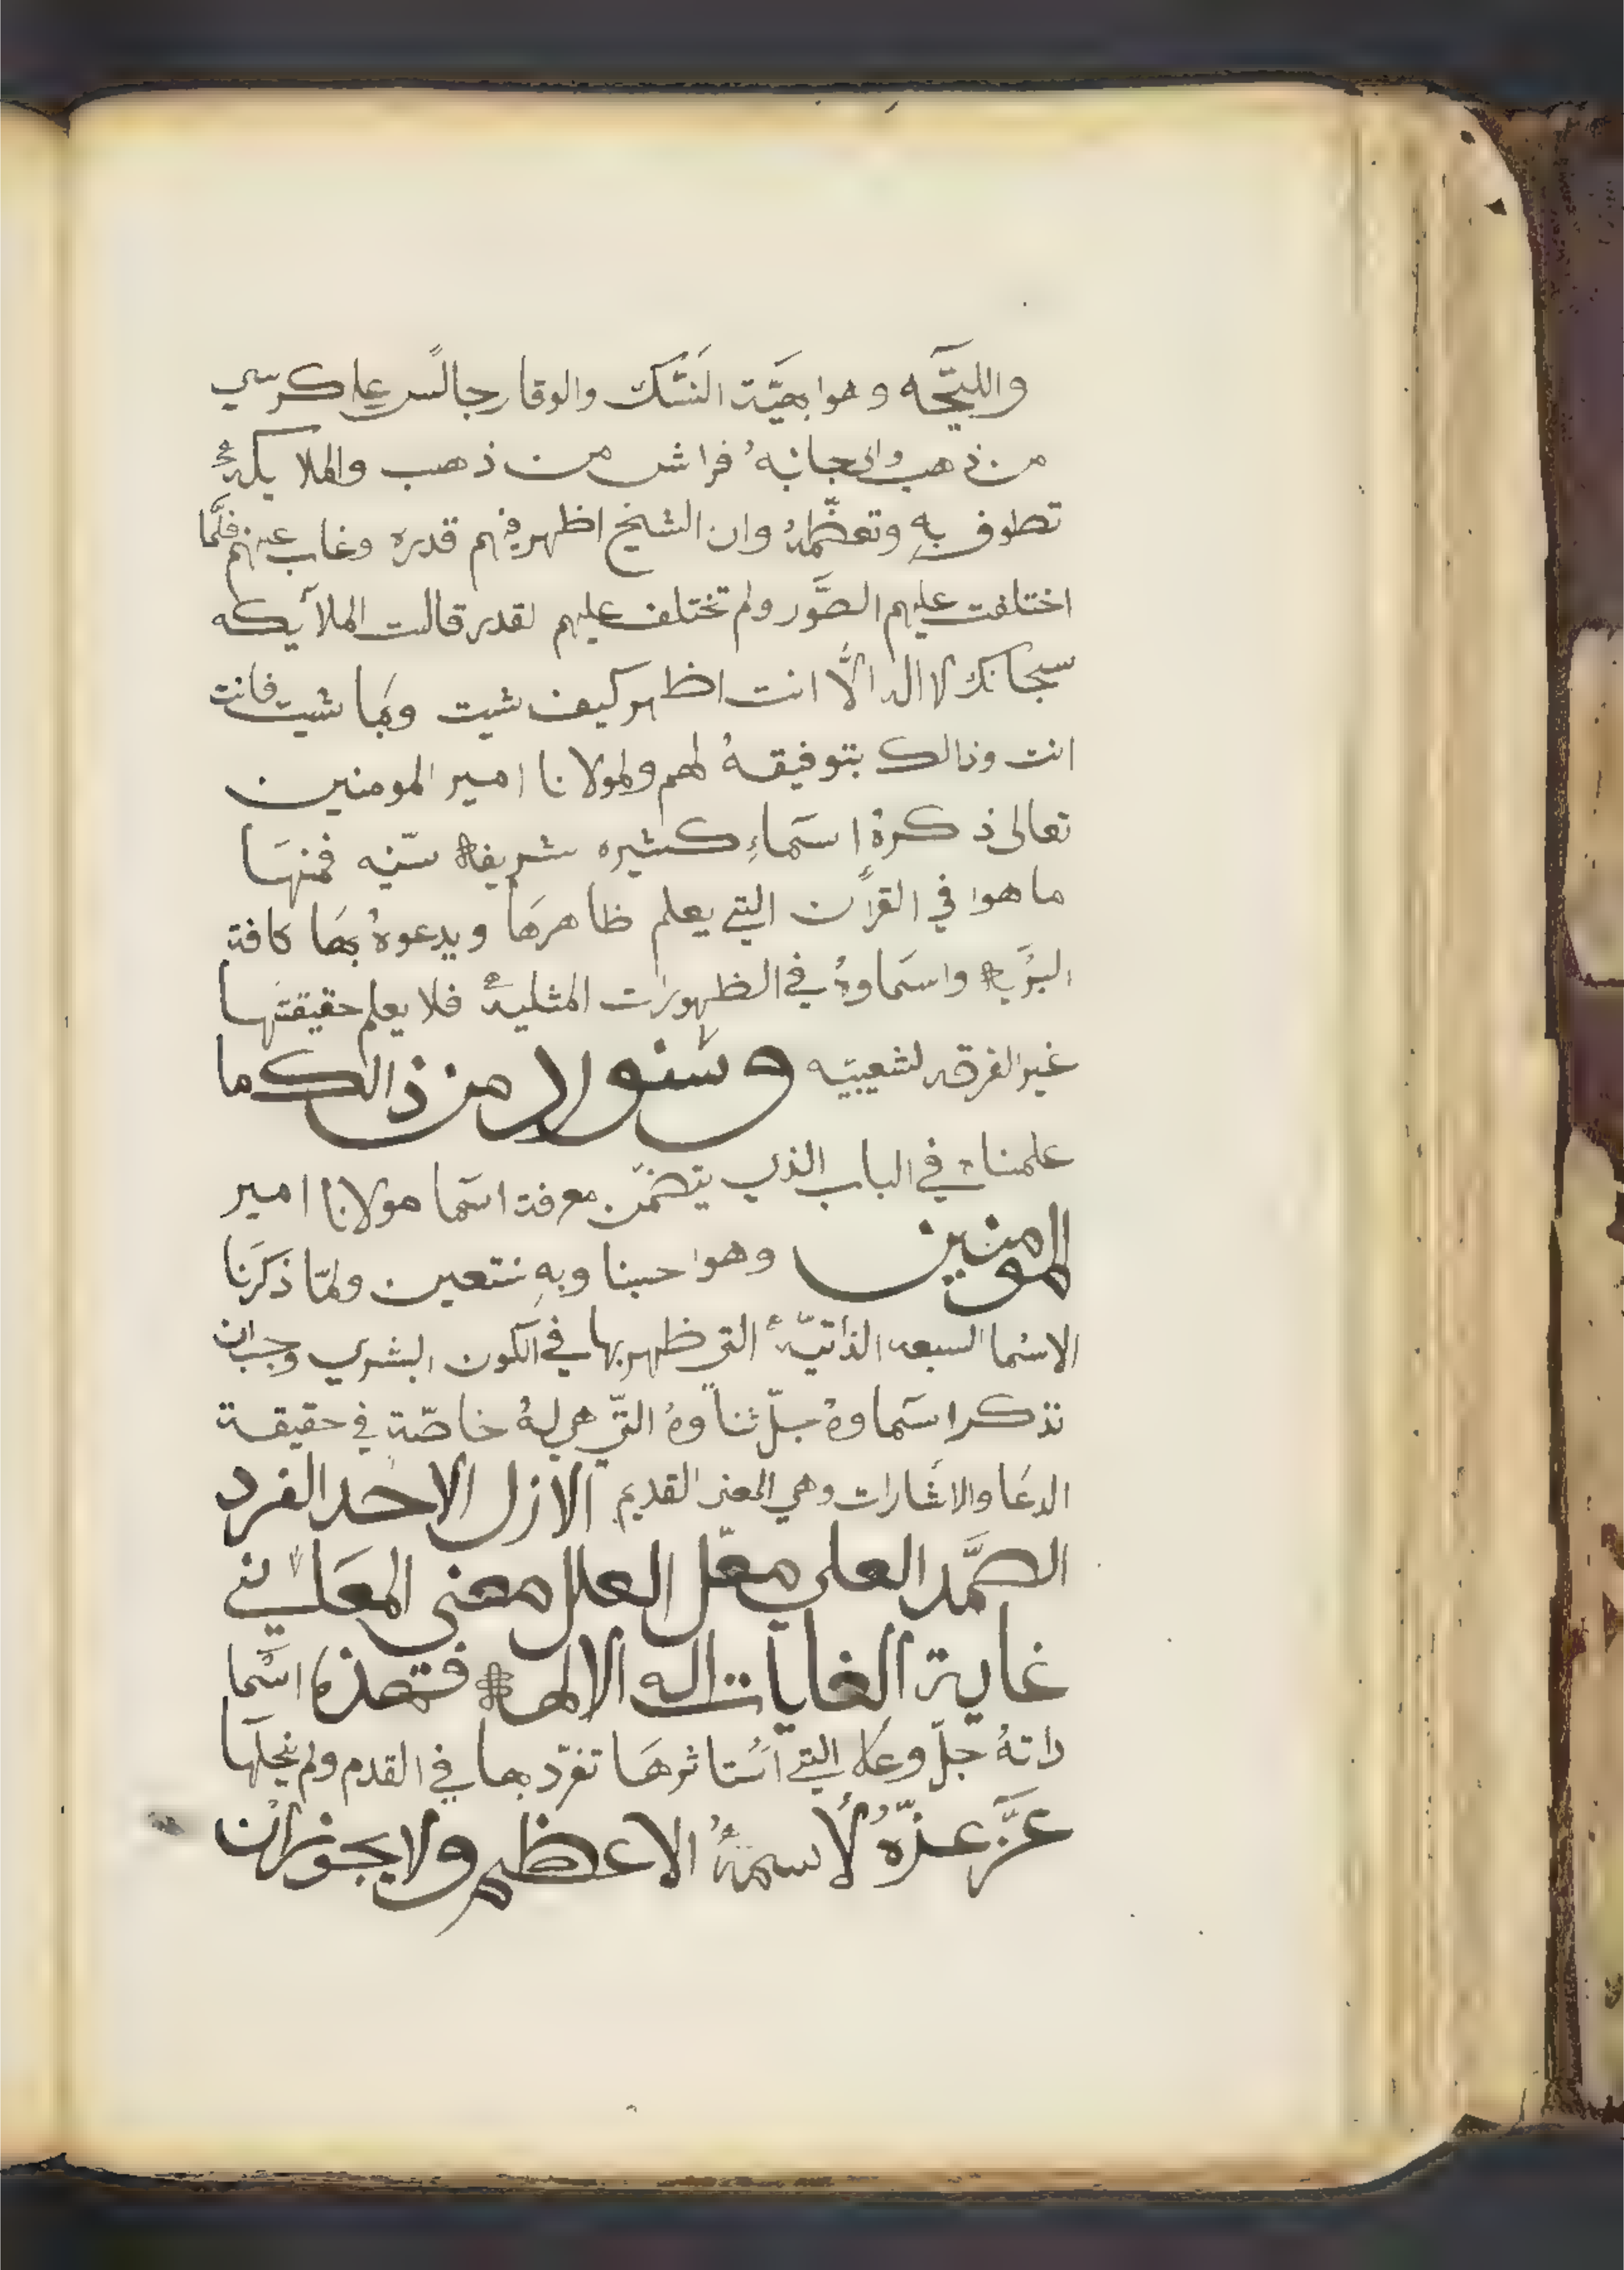 واللّحّيه وهوا بهيّة النّسّك والوقار جالسً علي كرسي
من ذهب والي جانبهُ فراش من ذهب والملايكة
تطوف بهِ وتعضّمهُ وان الشيخ اظهر فيهم قدره وغاب عنهم فلّما
اختلفت عليهم الصَّور ولم تختلف عليهم لقدره قالت الملآيكه
سبحانك لا اله الّا انت اظهر كيف شيت وبمَا شيت فانت
انت وذالك بتوفيقهُ لهم ولمولانا امير المومنين
تعالى ذكرهُ اسَماءِ كثيره شريفة سنّيه فمنهَا
ما هوا في القرآن التي يعلم ظاهرهَا ويدعوهُ بهَا كافة
البرَّية واسَماوهُ في الظهورات المثلية فلا يعلم حقيقتَها
غير الفرقه لشعيبيّه وسَنورد من ذالك ما
علمناه في الباب الذي يتضّمن معرفة اسَما مولانا امير
المومنين وهوا حسبنا وبهِ نستعين ولمّا ذكَرنَا
الاسْما السبعه الذاتيّة التي ظهر بها في الكون البشري وجب ان
نذكر اسَماوهُ جلّ ثناً وهُ التّي هي لهُ خاصّةٍ في حقيقة
الدعَا والاشَارات وهي المعنى القديم الازل الاحد الفرد
الصَّمد العلي معّل العلل معنى المعَاني
غاية الغايات اله الالهة فهذه اسْما
ذاتهُ جلّ وعلا التي اسْتاثرهَا تفرّد بها في القدم ولم ينحلَها
عَزَّ عزّهُ لأسمهُ الاعظم ولا يجوز انْ